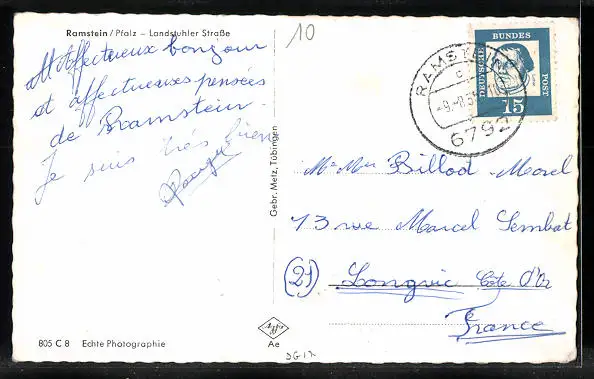 Ramstein/Pfalz – Landstuhler Straße
10
Affectueux bonjour
et affectueuses pensées
de Ramstein.
Je suis très bien
Gebr. Metz, Tübingen
DEUTSCHE
BUNDES
POST
15
RAMST
6792
Mr Mme Billod-Morel
13 rue Marcel Sembat
(21) Longvic Côte d'Or
France
Ae
805 C 8 Echte Photographie